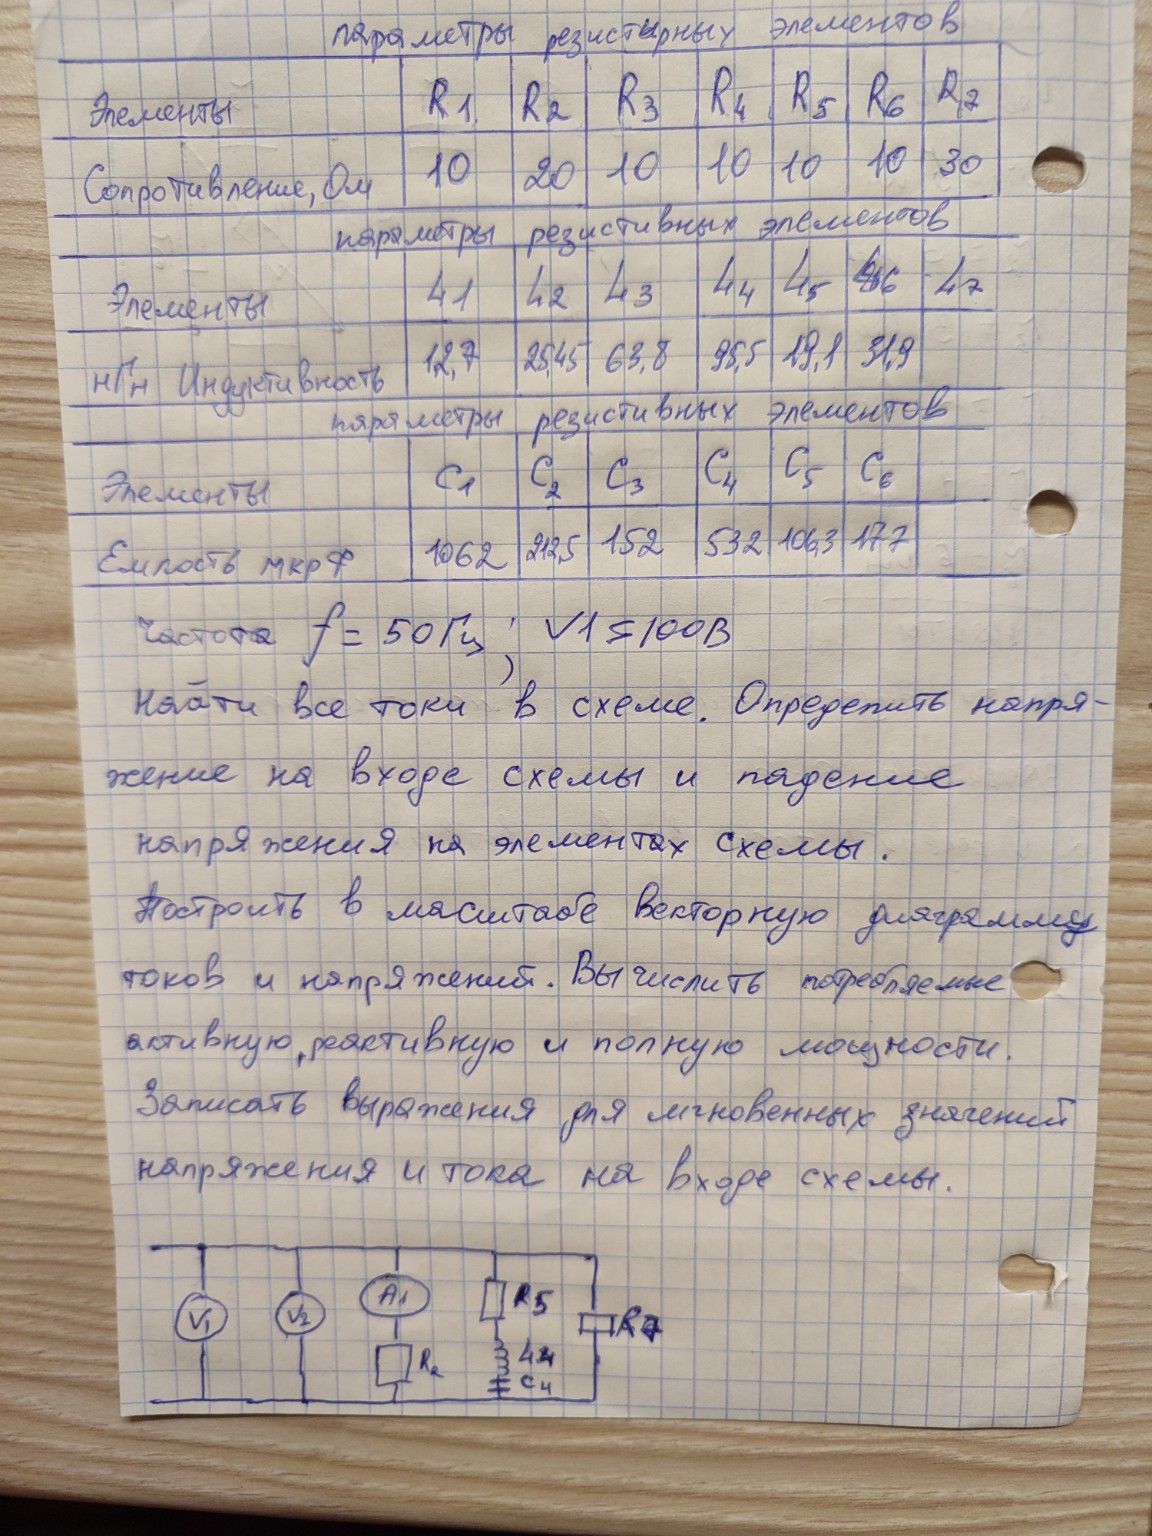 параметры резистырных элементов
Элементы R1 R2 R3 R4 R5 R6 R7
Сопротивление, Ом 10 20 10 10 10 10 30
параметры резистивных элементов
Элементы L1 L2 L3 L4 L5 L6 L7
нГн Индуктивность 12,7 25,45 63,8 95,5 19,1 31,9
параметры резистивных элементов
Элементы C1 C2 C3 C4 C5 C6
Емкость мкрФ 1062 212,5 152 532 106,3 177
Частота f = 50 Гц; V1 ≤ 100В
Найти все токи в схеме. Определить напря-
жение на входе схемы и падение
напряжения на элементах схемы.
Построить в масштабе векторную диаграмму
токов и напряжений. Вычислить потребляемые
активную, реактивную и полную мощности.
Записать выражения для мгновенных значений
напряжения и тока на входе схемы.
V1 V2 A1 R5 R7
R2 L4
C4